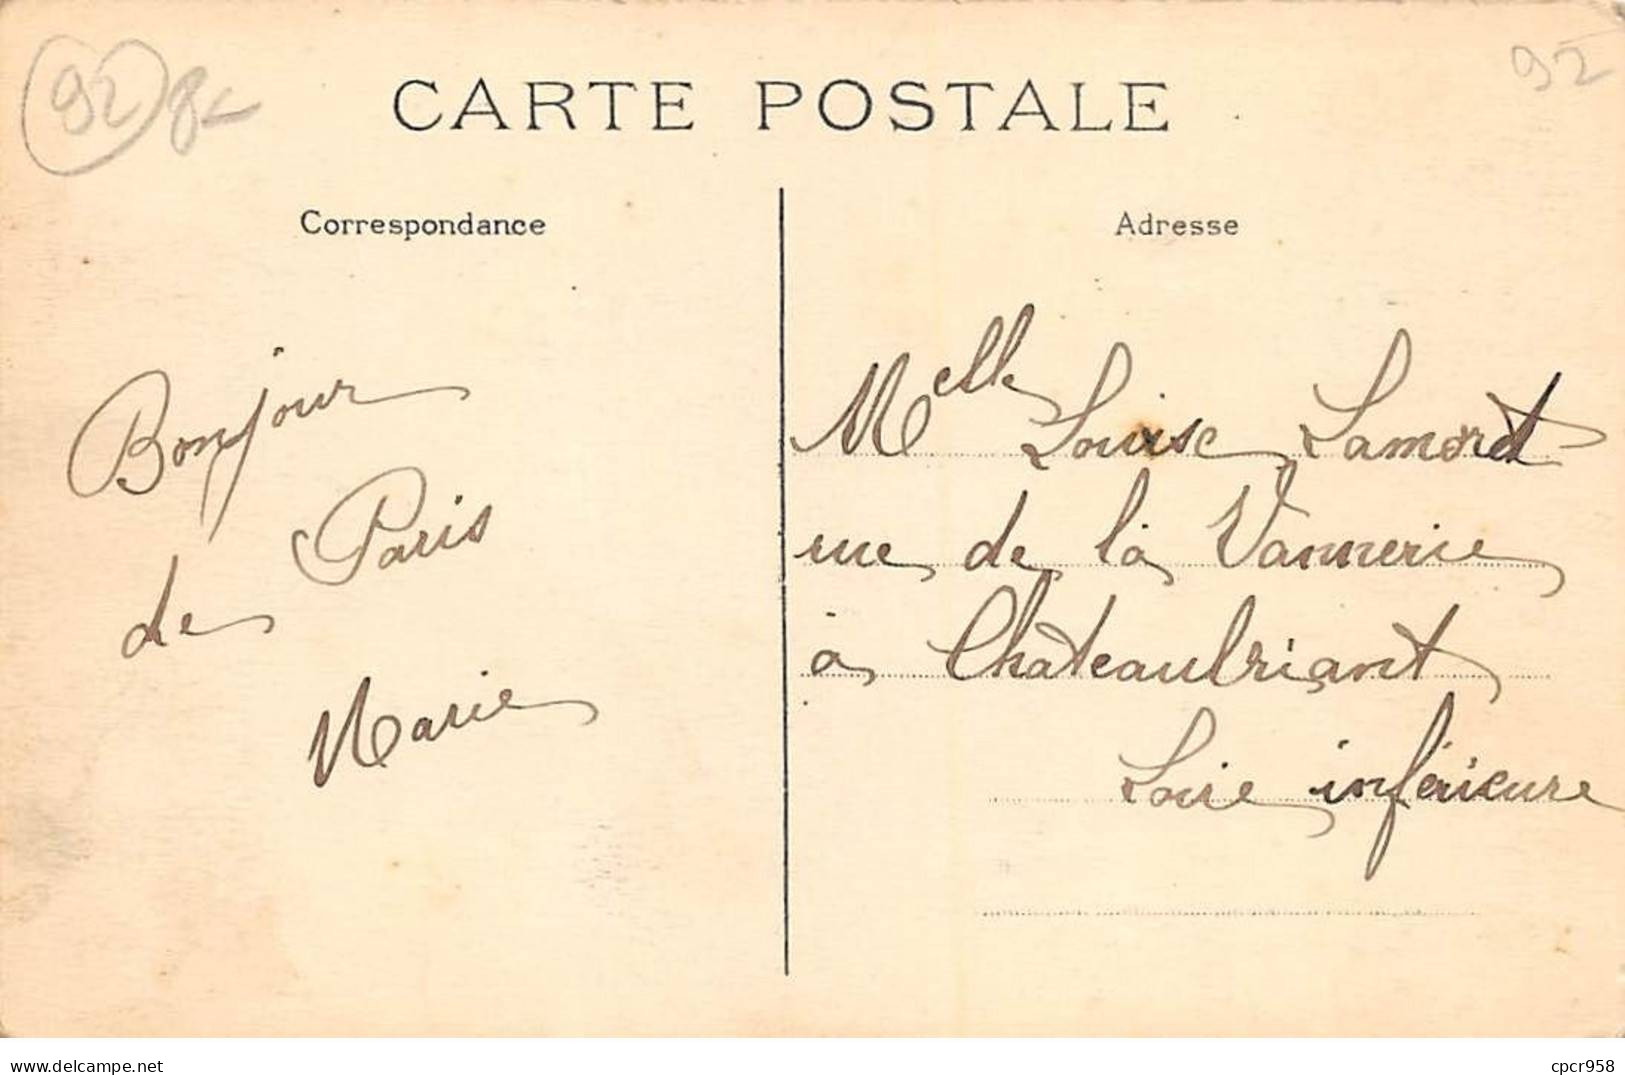 92 8 92
CARTE POSTALE
Correspondance
Adresse
Bonjour
de Paris
Marie
Melle Louise Lamord
rue de la Vannerie
à Châteaubriant
Loire inférieure
www.delcampe.net
cpcr958